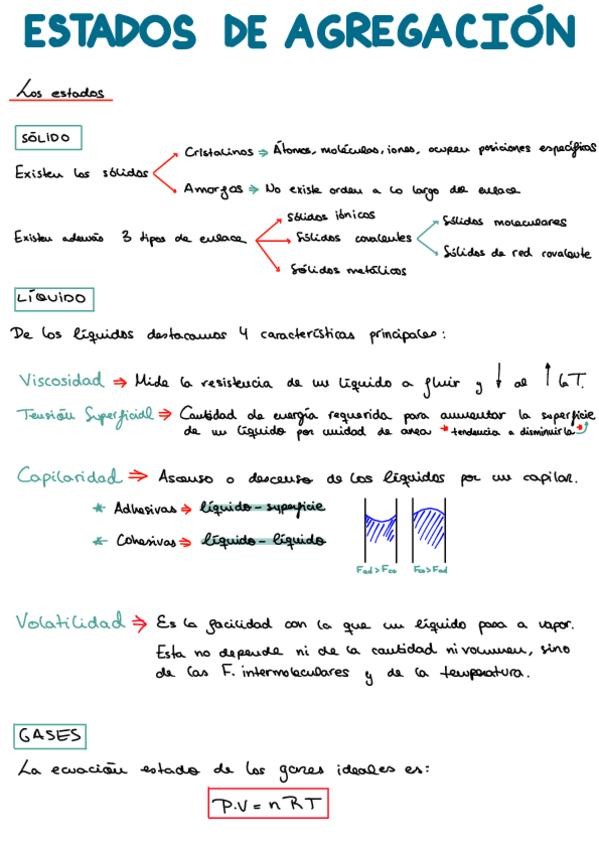 ESTADOS DE AGREGACIÓN
Los estados
SÓLIDO
Existen los sólidos
Cristalinos ⇒ Átomos, moléculas, iones, ocupen posiciones específicas
Amorfos ⇒ No existe orden a lo largo del enlace
Existen además 3 tipos de enlace
sólidos iónicos
Sólidos covalentes
Sólidos metálicos
Sólidos moleculares
Sólidos de red covalente
LÍQUIDO
De los líquidos destacamos 4 características principales:
Viscosidad ⇒ Mide la resistencia de un líquido a fluir y ↓ al ↑ la T.
Tensión Superficial ⇒ Cantidad de energía requerida para aumentar la superficie
de un líquido por unidad de area → tendencia a disminuirla
Capilaridad ⇒ Ascenso o descenso de los líquidos por un capilar.
* Adhesivas ⇒ líquido - superficie
* Cohesivas ⇒ líquido - líquido
Fad > Fco Fco > Fad
Volatilidad ⇒ Es la facilidad con la que un líquido pasa a vapor.
Esta no depende ni de la cantidad ni volumen, sino
de las F. intermoleculares y de la temperatura.
GASES
La ecuación estado de los gases ideales es:
P.V = nRT